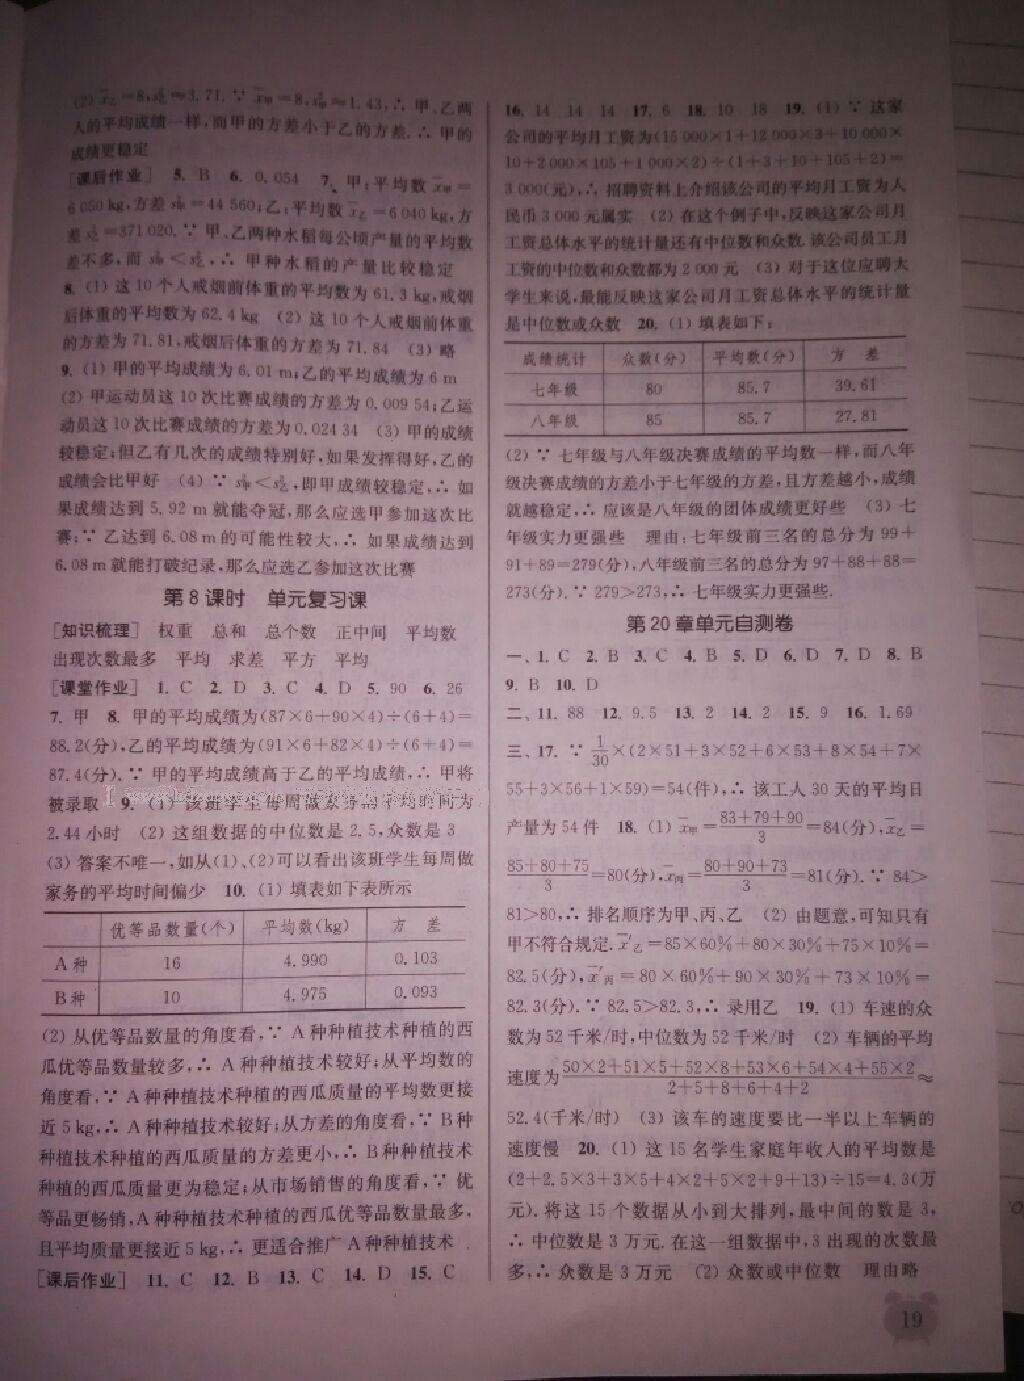 (2) x̄乙=8,s²乙≈3.71.∵ x̄甲=8,s²甲≈1.43,∴ 甲、乙两
人的平均成绩一样,而甲的方差小于乙的方差.∴ 甲的
成绩更稳定
[课后作业] 5. B 6. 0.054 7. 甲:平均数 x̄甲=
6 050 kg,方差s²甲=44 560;乙:平均数 x̄乙=6 040 kg,方
差s²乙=371 020.∵ 甲、乙两种水稻每公顷产量的平均数
差不多,而 s²甲<s²乙,∴ 甲种水稻的产量比较稳定
8. (1) 这10个人戒烟前体重的平均数为61.3 kg,戒烟
后体重的平均数为62.4 kg (2) 这10个人戒烟前体重
的方差为71.81,戒烟后体重的方差为71.84 (3) 略
9. (1) 甲的平均成绩为6.01 m;乙的平均成绩为6 m
(2) 甲运动员这10次比赛成绩的方差为0.009 54;乙运
动员这10次比赛成绩的方差为0.024 34 (3) 甲的成绩
较稳定;但乙有几次的成绩特别好,如果发挥得好,乙的
成绩会比甲好 (4) ∵ s²甲<s²乙,即甲成绩较稳定,∴ 如
果成绩达到5.92 m就能夺冠,那么应选甲参加这次比
赛;∵ 乙达到6.08 m的可能性较大,∴ 如果成绩达到
6.08 m就能打破纪录,那么应选乙参加这次比赛
第8课时 单元复习课
[知识梳理] 权重 总和 总个数 正中间 平均数
出现次数最多 平均 求差 平方 平均
[课堂作业] 1. C 2. D 3. C 4. D 5. 90 6. 26
7. 甲 8. 甲的平均成绩为(87×6+90×4)÷(6+4)=
88.2(分),乙的平均成绩为(91×6+82×4)÷(6+4)=
87.4(分).∵ 甲的平均成绩高于乙的平均成绩,∴ 甲将
被录取 9. (1) 该班学生每周做家务的平均时间为
2.44小时 (2) 这组数据的中位数是2.5,众数是3
(3) 答案不唯一,如从(1)、(2)可以看出该班学生每周做
家务的平均时间偏少 10. (1) 填表如下表所示
优等品数量(个) 平均数(kg) 方 差
A种 16 4.990 0.103
B种 10 4.975 0.093
(2) 从优等品数量的角度看,∵ A种种植技术种植的西
瓜优等品数量较多,∴ A种种植技术较好;从平均数的
角度看,∵ A种种植技术种植的西瓜质量的平均数更接
近5 kg,∴ A种种植技术较好;从方差的角度看,∵ B种
种植技术种植的西瓜质量的方差更小,∴ B种种植技术
种植的西瓜质量更为稳定;从市场销售的角度看,∵ 优
等品更畅销,A种种植技术种植的西瓜优等品数量最多,
且平均质量更接近5 kg,∴ 更适合推广A种种植技术
[课后作业] 11. C 12. B 13. C 14. D 15. C
16. 14 14 14 17. 6 18. 10 18 19. (1) ∵ 这家
公司的平均月工资为(15 000×1+12 000×3+10 000×
10+2 000×105+1 000×2)÷(1+3+10+105+2)=
3 000(元),∴ 招聘资料上介绍该公司的平均月工资为人
民币3 000元属实 (2) 在这个例子中,反映这家公司月
工资总体水平的统计量还有中位数和众数.该公司员工月
工资的中位数和众数都为2 000元 (3) 对于这位应聘大
学生来说,最能反映这家公司月工资总体水平的统计量
是中位数或众数 20. (1) 填表如下:
成绩统计 众数(分) 平均数(分) 方 差
七年级 80 85.7 39.61
八年级 85 85.7 27.81
(2) ∵ 七年级与八年级决赛成绩的平均数一样,而八年
级决赛成绩的方差小于七年级的方差,且方差越小,成绩
就越稳定,∴ 应该是八年级的团体成绩更好些 (3) 七
年级实力更强些 理由:七年级前三名的总分为99+
91+89=279(分),八年级前三名的总分为97+88+88=
273(分).∵ 279>273,∴ 七年级实力更强些.
第20章单元自测卷
一、1. C 2. B 3. C 4. B 5. D 6. D 7. D 8. B
9. B 10. D
二、11. 88 12. 9.5 13. 2 14. 2 15. 9 16. 1.69
三、17. ∵ 1/30×(2×51+3×52+6×53+8×54+7×
55+3×56+1×59)=54(件),∴ 该工人30天的平均日
产量为54件 18. (1) x̄甲=(83+79+90)/3=84(分),x̄乙=
(85+80+75)/3=80(分),x̄丙=(80+90+73)/3=81(分).∵ 84>
81>80,∴ 排名顺序为甲、丙、乙 (2) 由题意,可知只有
甲不符合规定.x̄′乙=85×60%+80×30%+75×10%=
82.5(分),x̄′丙=80×60%+90×30%+73×10%=
82.3(分).∵ 82.5>82.3,∴ 录用乙 19. (1) 车速的众
数为52千米/时,中位数为52千米/时 (2) 车辆的平均
速度为(50×2+51×5+52×8+53×6+54×4+55×2)/(2+5+8+6+4+2)≈
52.4(千米/时) (3) 该车的速度要比一半以上车辆的
速度慢 20. (1) 这15名学生家庭年收入的平均数是
(2+2.5×3+3×5+4×2+5×2+9+13)÷15=4.3(万
元).将这15个数据从小到大排列,最中间的数是3,
∴ 中位数是3万元.在这一组数据中,3出现的次数最
多,∴ 众数是3万元 (2) 众数或中位数 理由略
19